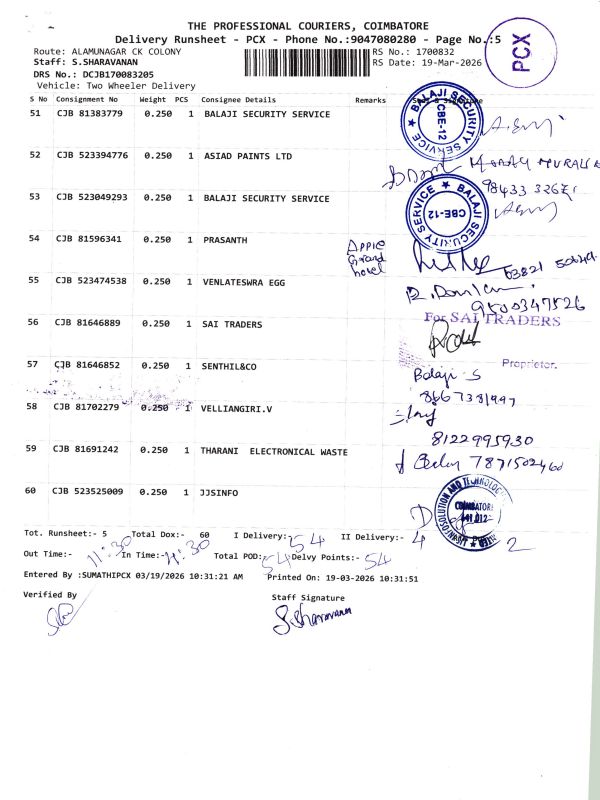 THE PROFESSIONAL COURIERS, COIMBATORE
Delivery Runsheet - PCX - Phone No.:9047080280 - Page No.:5
PCX
Route: ALAMUNAGAR CK COLONY RS No.: 1700832
Staff: S.SHARAVANAN RS Date: 19-Mar-2026
DRS No.: DCJB170083205
Vehicle: Two Wheeler Delivery
S No Consignment No Weight PCS Consignee Details Remarks
51 CJB 81383779 0.250 1 BALAJI SECURITY SERVICE
BALAJI SECURITY SERVICE CBE-12
52 CJB 523394776 0.250 1 ASIAD PAINTS LTD
53 CJB 523049293 0.250 1 BALAJI SECURITY SERVICE
BALAJI SECURITY SERVICE CBE-12
54 CJB 81596341 0.250 1 PRASANTH Apple Grand hotel
55 CJB 523474538 0.250 1 VENLATESWRA EGG
9500347526
56 CJB 81646889 0.250 1 SAI TRADERS
For SAI TRADERS
Proprietor.
57 CJB 81646852 0.250 1 SENTHIL&CO
Balaji S
58 CJB 81702279 0.250 1 VELLIANGIRI.V
8122995930
59 CJB 81691242 0.250 1 THARANI ELECTRONICAL WASTE
7871502460
60 CJB 523525009 0.250 1 JJSINFO
Tot. Runsheet:- 5 Total Dox:- 60 I Delivery:- 54 II Delivery:- 4
2
Out Time:- 11:30 In Time:- 4:30 Total POD:- 54 Delvy Points:- 54
Entered By :SUMATHIPCX 03/19/2026 10:31:21 AM Printed On: 19-03-2026 10:31:51
Verified By Staff Signature
S.Sharavanan